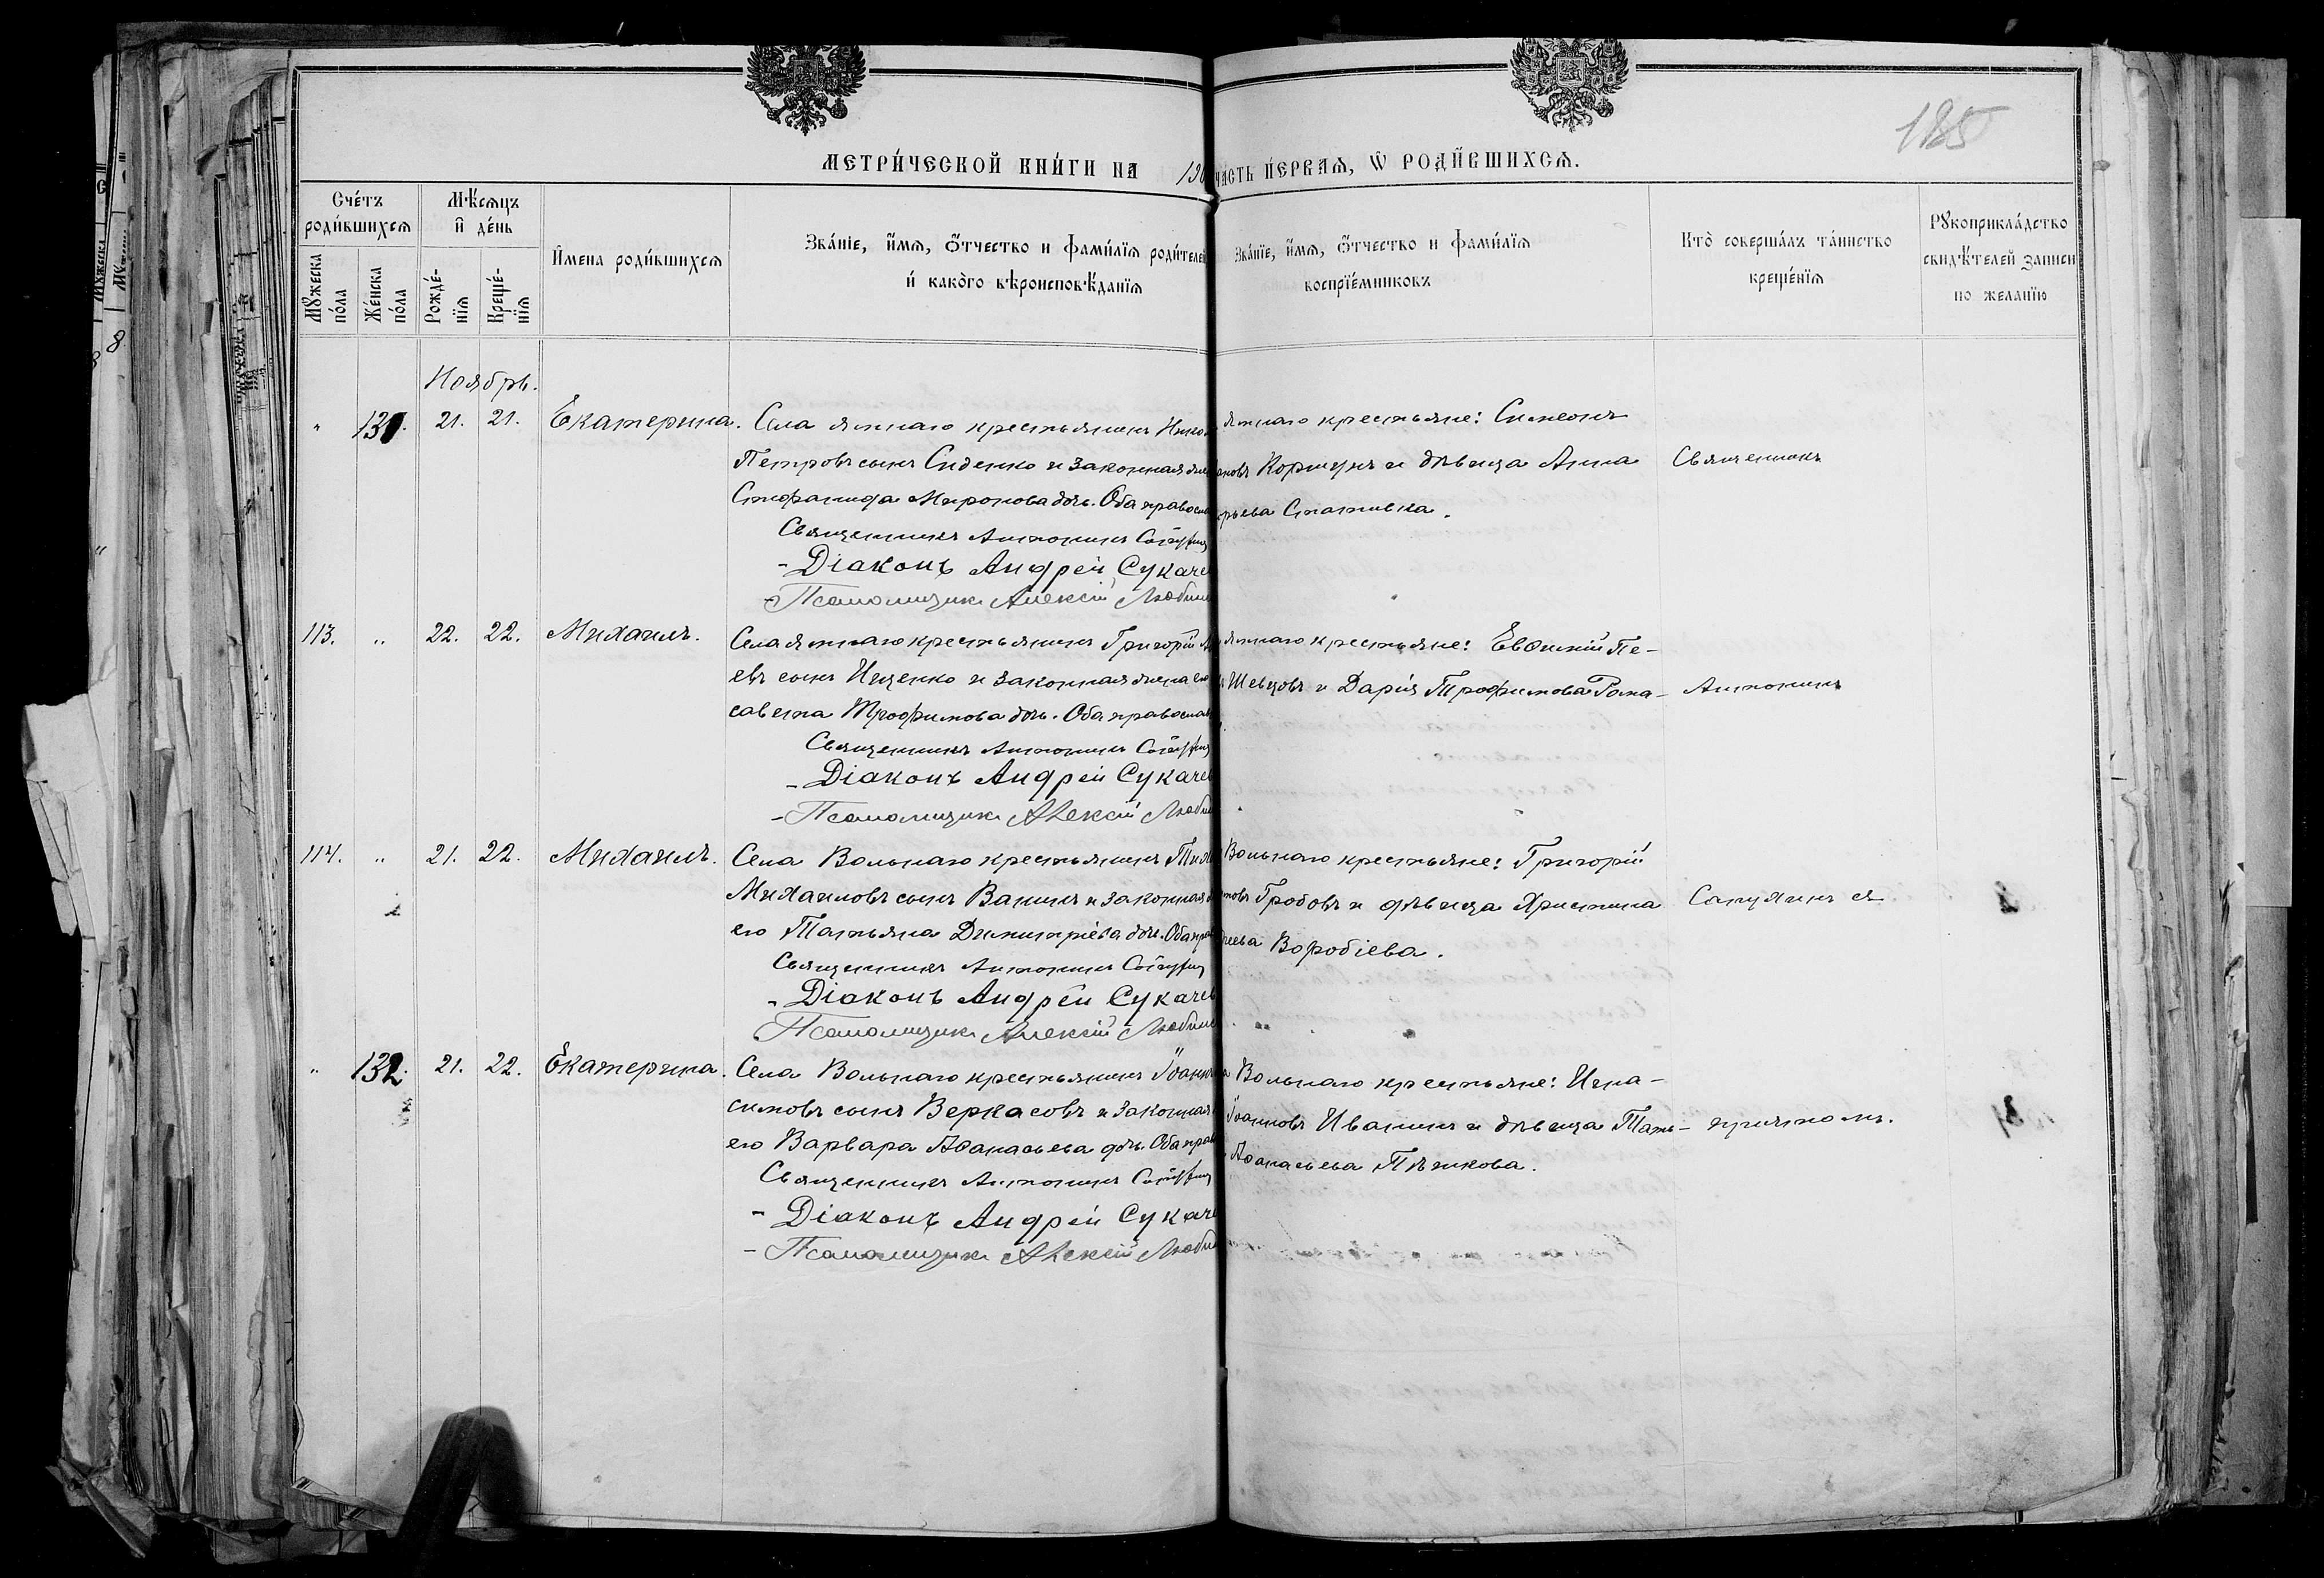 185
МЕТРИЧЕСКОЙ КНИГИ НА 190 ЧАСТЬ ПЕРВАЯ, Ѡ РОДИВШИХСЯ.
Счетъ родившихся
Мѣсяцъ и день
Имена родившихся
Званіе, имя, отчество и фамилія родителей
и какого вѣроисповѣданія
Званіе, имя, отчество и фамилія
воспріемниковъ
Кто совершалъ таинство
крещенія
Рукоприкладство
свидѣтелей записи
по желанію
Мужеска пола
Женска пола
Рожденія
Крещенія
Ноябрь.
" 131. 21. 21. Екатерина. Села яннаго крестьянинъ Нико
Петровъ сынъ Сиденко и законная
Стефанида Миронова дочь. Оба правосл
Священникъ Антонинъ
- Діаконъ Андрей Сукаче
- Псаломщикъ Алексій Любиц
крестьяне: Симеонъ
Коршунъ и дѣвица Анна
Стативка.
Священникъ
113. " 22. 22. Михаилъ. Села крестьянинъ Григорій
евъ сынъ Ищенко и законная жена его
савета Трофимова дочь. Оба православ
Священникъ Антонинъ
- Діаконъ Андрей Сукачев
- Псаломщикъ Алексій Любиц
крестьяне: Евѳимій Пе-
Шевцовъ и Дарія Трофимова Рома-
Антонинъ
114. " 21. 22. Михаилъ. Села Вольнаго крестьянинъ Тих
Михаиловъ сынъ Ванинъ и законная
его Татьяна Димитріева дочь. Оба прав
Священникъ Антонинъ
- Діаконъ Андрей Сукачев
Псаломщикъ Алексій Любиц
Вольнаго крестьяне: Григорій
Гробовъ и дѣвица Христина
еева Воробіева.
съ
" 132. 21. 22. Екатерина. Села Вольнаго крестьянинъ Іоаннъ
симовъ сынъ Веркасовъ и законная
его Варвара Аѳанасьева дочь. Оба прав
Священникъ Антонинъ
- Діаконъ Андрей Сукаче
- Псаломщикъ Алексій Любиц
Вольнаго крестьяне: Игна-
Іоанновъ Иванинъ и дѣвица Тать-
Аѳанасьева Пѣшкова.
причтомъ.